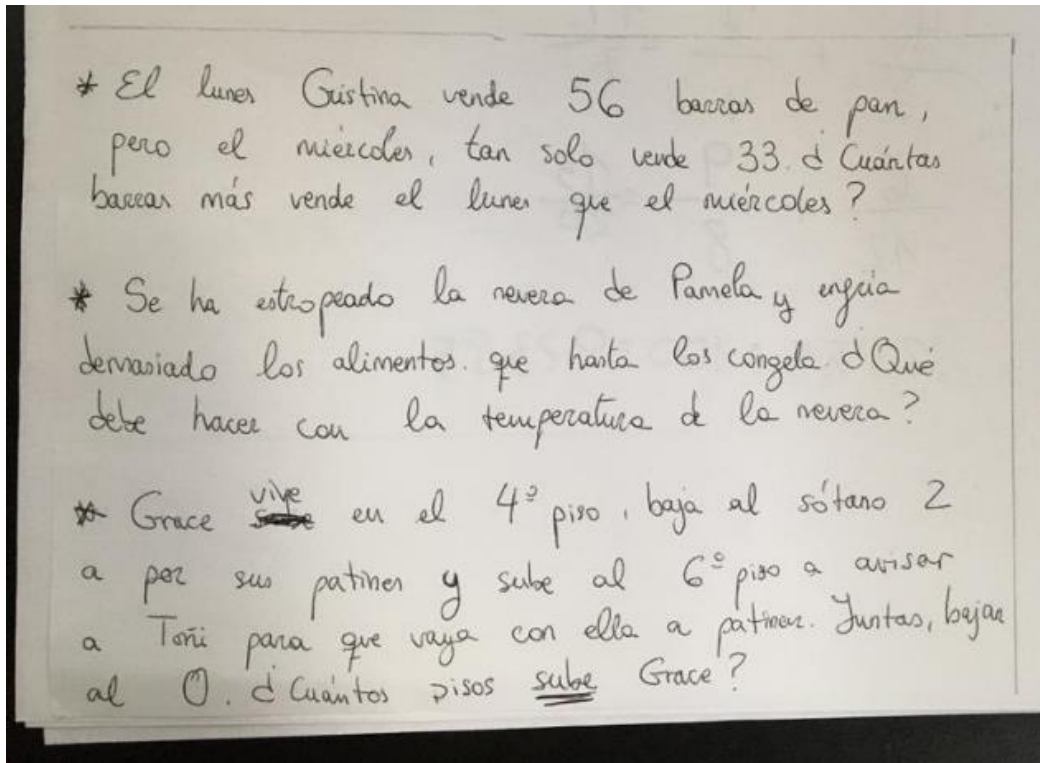 * El lunes Cristina vende 56 barras de pan,
pero el miércoles, tan solo vende 33. ¿Cuántas
barras más vende el lunes que el miércoles?
* Se ha estropeado la nevera de Pamela y enfría
demasiado los alimentos. que hasta los congela. ¿Qué
debe hacer con la temperatura de la nevera?
* Grace vive en el 4º piso, baja al sótano 2
a por sus patines y sube al 6º piso a avisar
a Toñi para que vaya con ella a patinar. Juntas, bajan
al 0. ¿Cuántos pisos sube Grace?